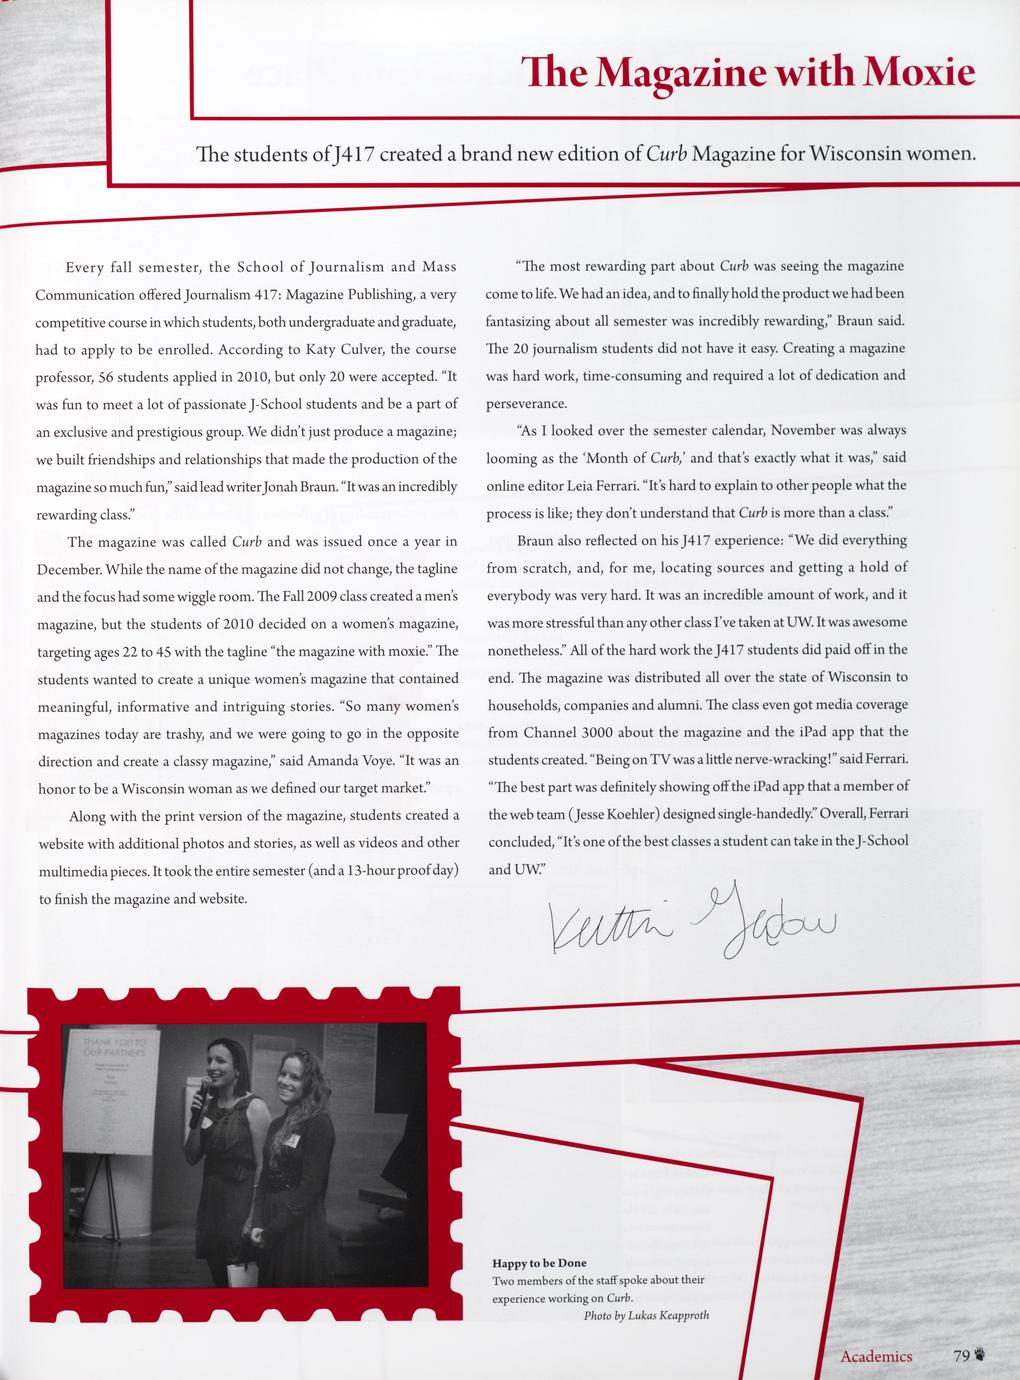 The Magazine with Moxie
The students of J417 created a brand new edition of Curb Magazine for Wisconsin women.
Every fall semester, the School of Journalism and Mass
Communication offered Journalism 417: Magazine Publishing, a very
competitive course in which students, both undergraduate and graduate,
had to apply to be enrolled. According to Katy Culver, the course
professor, 56 students applied in 2010, but only 20 were accepted. “It
was fun to meet a lot of passionate J-School students and be a part of
an exclusive and prestigious group. We didn’t just produce a magazine;
we built friendships and relationships that made the production of the
magazine so much fun,” said lead writer Jonah Braun. “It was an incredibly
rewarding class.”
The magazine was called Curb and was issued once a year in
December. While the name of the magazine did not change, the tagline
and the focus had some wiggle room. The Fall 2009 class created a men’s
magazine, but the students of 2010 decided on a women’s magazine,
targeting ages 22 to 45 with the tagline “the magazine with moxie.” The
students wanted to create a unique women’s magazine that contained
meaningful, informative and intriguing stories. “So many women’s
magazines today are trashy, and we were going to go in the opposite
direction and create a classy magazine,” said Amanda Voye. “It was an
honor to be a Wisconsin woman as we defined our target market.”
Along with the print version of the magazine, students created a
website with additional photos and stories, as well as videos and other
multimedia pieces. It took the entire semester (and a 13-hour proof day)
to finish the magazine and website.
“The most rewarding part about Curb was seeing the magazine
come to life. We had an idea, and to finally hold the product we had been
fantasizing about all semester was incredibly rewarding,” Braun said.
The 20 journalism students did not have it easy. Creating a magazine
was hard work, time-consuming and required a lot of dedication and
perseverance.
“As I looked over the semester calendar, November was always
looming as the ‘Month of Curb,’ and that’s exactly what it was,” said
online editor Leia Ferrari. “It’s hard to explain to other people what the
process is like; they don’t understand that Curb is more than a class.”
Braun also reflected on his J417 experience: “We did everything
from scratch, and, for me, locating sources and getting a hold of
everybody was very hard. It was an incredible amount of work, and it
was more stressful than any other class I’ve taken at UW. It was awesome
nonetheless.” All of the hard work the J417 students did paid off in the
end. The magazine was distributed all over the state of Wisconsin to
households, companies and alumni. The class even got media coverage
from Channel 3000 about the magazine and the iPad app that the
students created. “Being on TV was a little nerve-wracking!” said Ferrari.
“The best part was definitely showing off the iPad app that a member of
the web team (Jesse Koehler) designed single-handedly.” Overall, Ferrari
concluded, “It’s one of the best classes a student can take in the J-School
and UW.”
THANK YOU TO
OUR PARTNERS
Happy to be Done
Two members of the staff spoke about their
experience working on Curb.
Photo by Lukas Keapproth
Academics 79